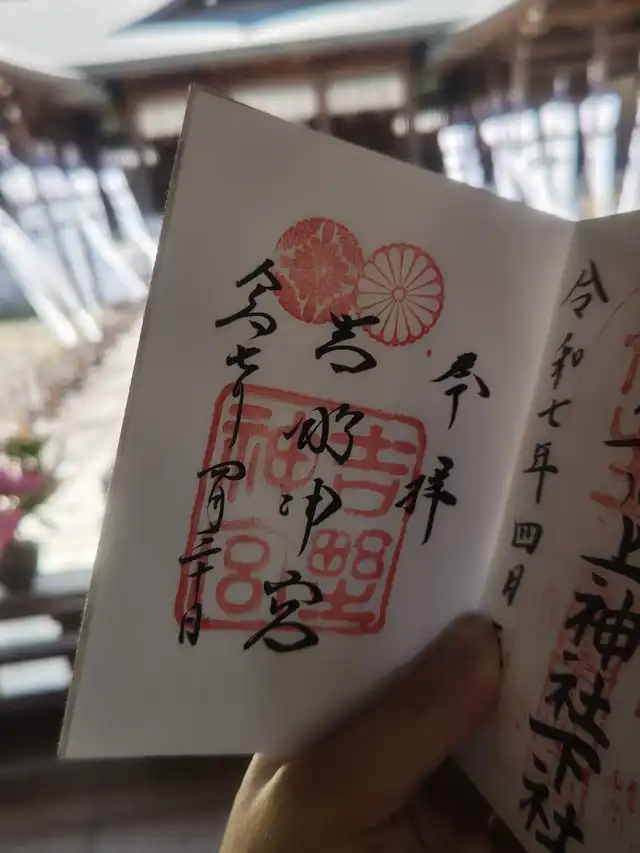 上神社下社
令和七年四月
奉拝
吉野神宮
吉野
神宮
令和七年四月三十日